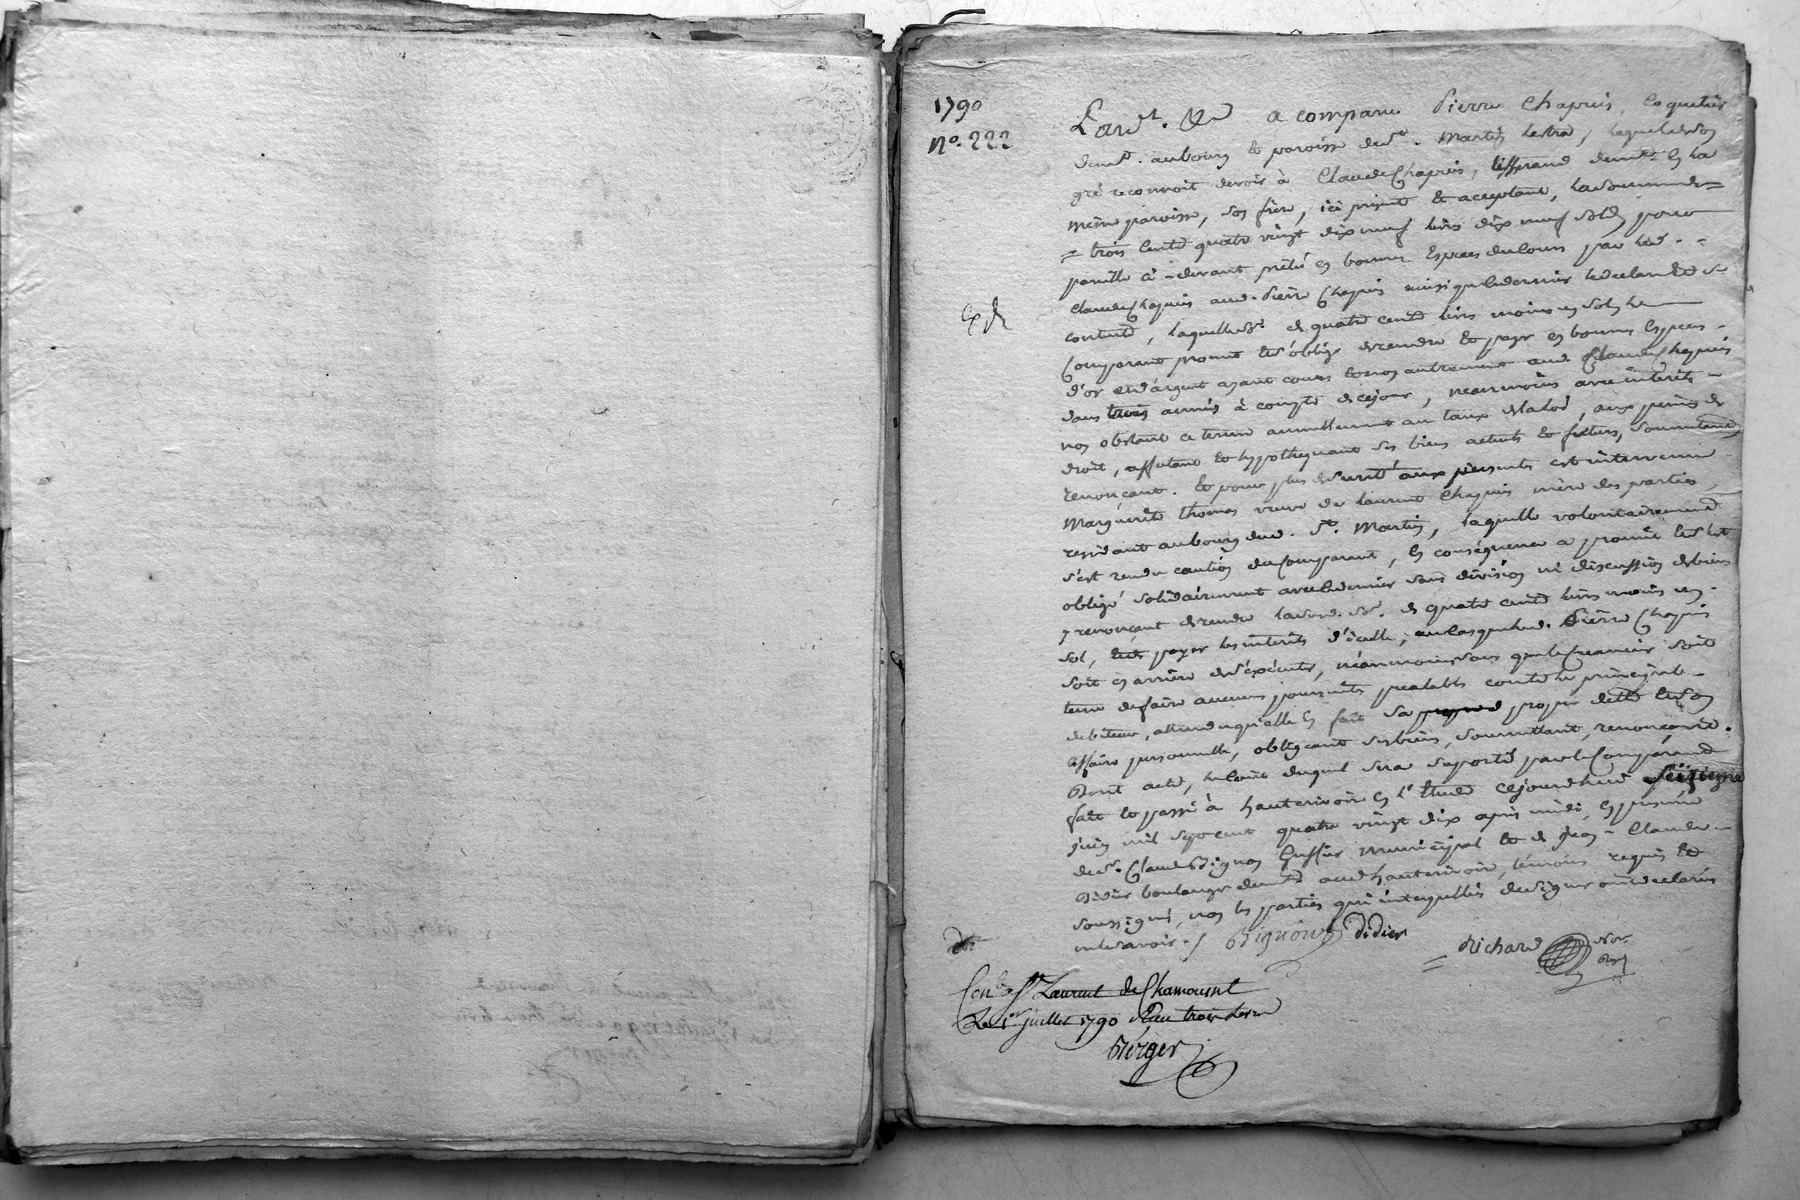 1790
n°. 222
Pardt. &c a comparu Pierre Chapuis, Coquetier
demt. au bourg et paroisse de st. Martin lestra, lequel de son
gré reconnoit devoir à Claude Chapuis, tisserand demt. en la
même paroisse, son frère, ici présent et acceptant, la somme de =
= trois cents quatre vingt dix neuf livs dix neuf sols, pour
pareille ci-devant prêtée en bonnes Espèces du cours par led. -
Claude Chapuis aud. Pierre Chapuis ainsi que le dernier le declare et s'en
contente, laquelle se. de quatre cents livs moins un sol, le
Comparant promet et s'oblige de rendre et payer en bonnes Espèces -
d'or et d'argent ayant cours et non autrement aud. Claude Chapuis
dans trois années à compter de ce jour, néanmoins avec intérêts -
non obstant ce terme annuellement au taux de la loi, aux peines de
droit, affectant et hypothequant ses biens actuels et futurs, soumettant,
renonçant. Et pour plus de sureté aux présentes est intervenue
Marguerite thomas veuve de laurent Chapuis mère des parties,
residant au bourg dud. St. Martin, laquelle volontairement
s'est rendue caution du Comparant, en conséquence a promis et s'est
obligé solidairement avec le dernier sans division ni discussion de biens
y renonçant de rendre lad. se. de quatre cents livs moins un -
sol, payer les intérêts d'icelle, au cas que led. Pierre Chapuis
soit en arrière de s'exécuter, néanmoins sans que le Créancier soit
tenu de faire aucunes poursuites prealables contre le principal -
debiteur, attendu qu'elle en fait sa propre dette et son
affaire personnelle, obligeant ses biens, soumettant, renonçant.
Dont acte, le coût duquel sera suporté par le Comparant
fait et passé à hauterivoire en l'Etude ce jourd'hui seizieme
juin mil sept cent quatre vingt dix après midi, en présence
de sr. Claude Bignon Greffier municipal et de Jean-Claude -
Didier boulanger demt. aud. hauterivoire, témoins requis et
soussignés, non les parties qui interpellées de signer ont declaré
ne le savoir./
Bignon Didier
Richard Nore. Royl
Conlé. à St. Laurent de Chamousset
Le 1er juillet 1790 Reçu trois livres
Berger